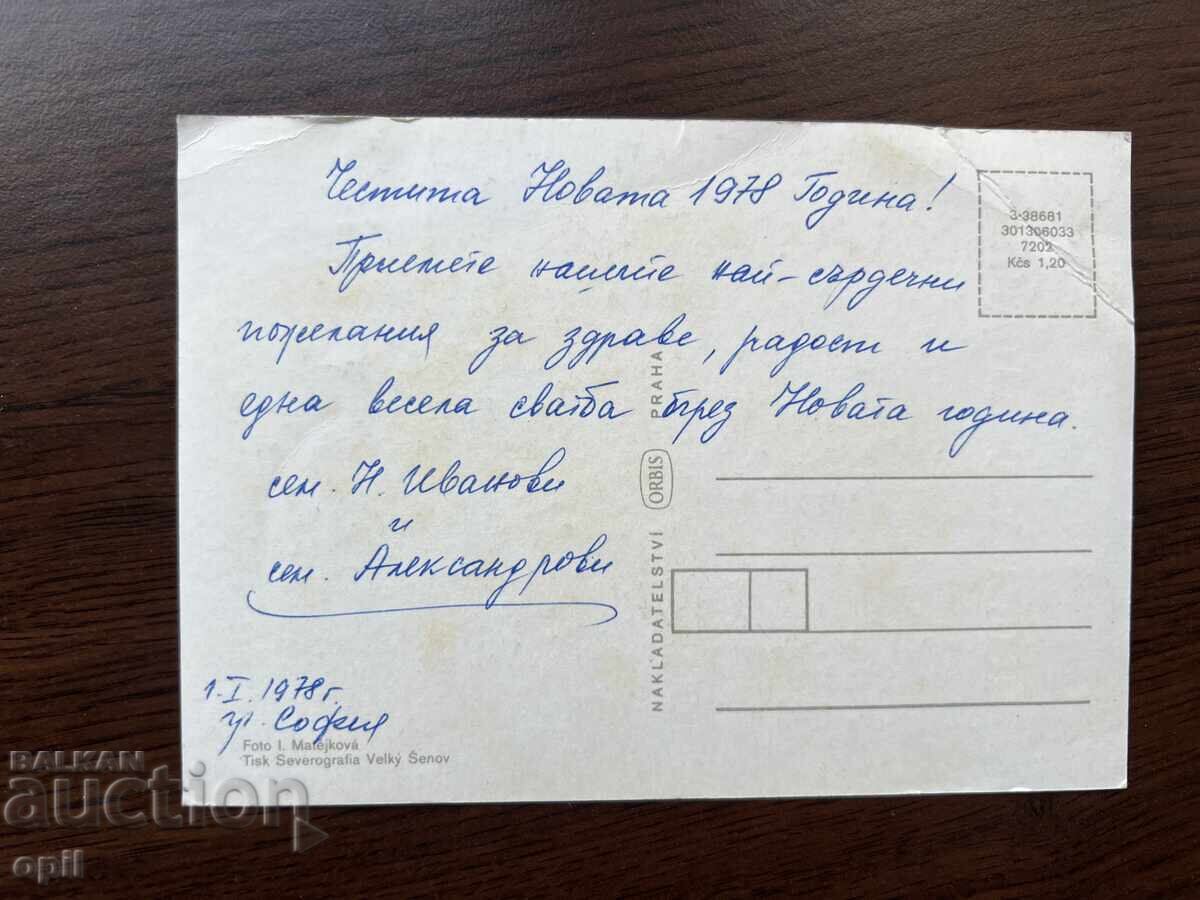 Честита Новата 1978 Година!
Приемете нашите най-сърдечни
пожелания за здраве, радост и
една весела сватба през Новата година.
сем. Н. Иванови
и
сем. Александрови
1.I.1978г.
гр. София
3-38681
301306033
7202
Kčs 1,20
NAKLADATELSTVÍ ORBIS PRAHA
Foto I. Matějková
Tisk Severografia Velký Šenov
BALKAN
auction
opil